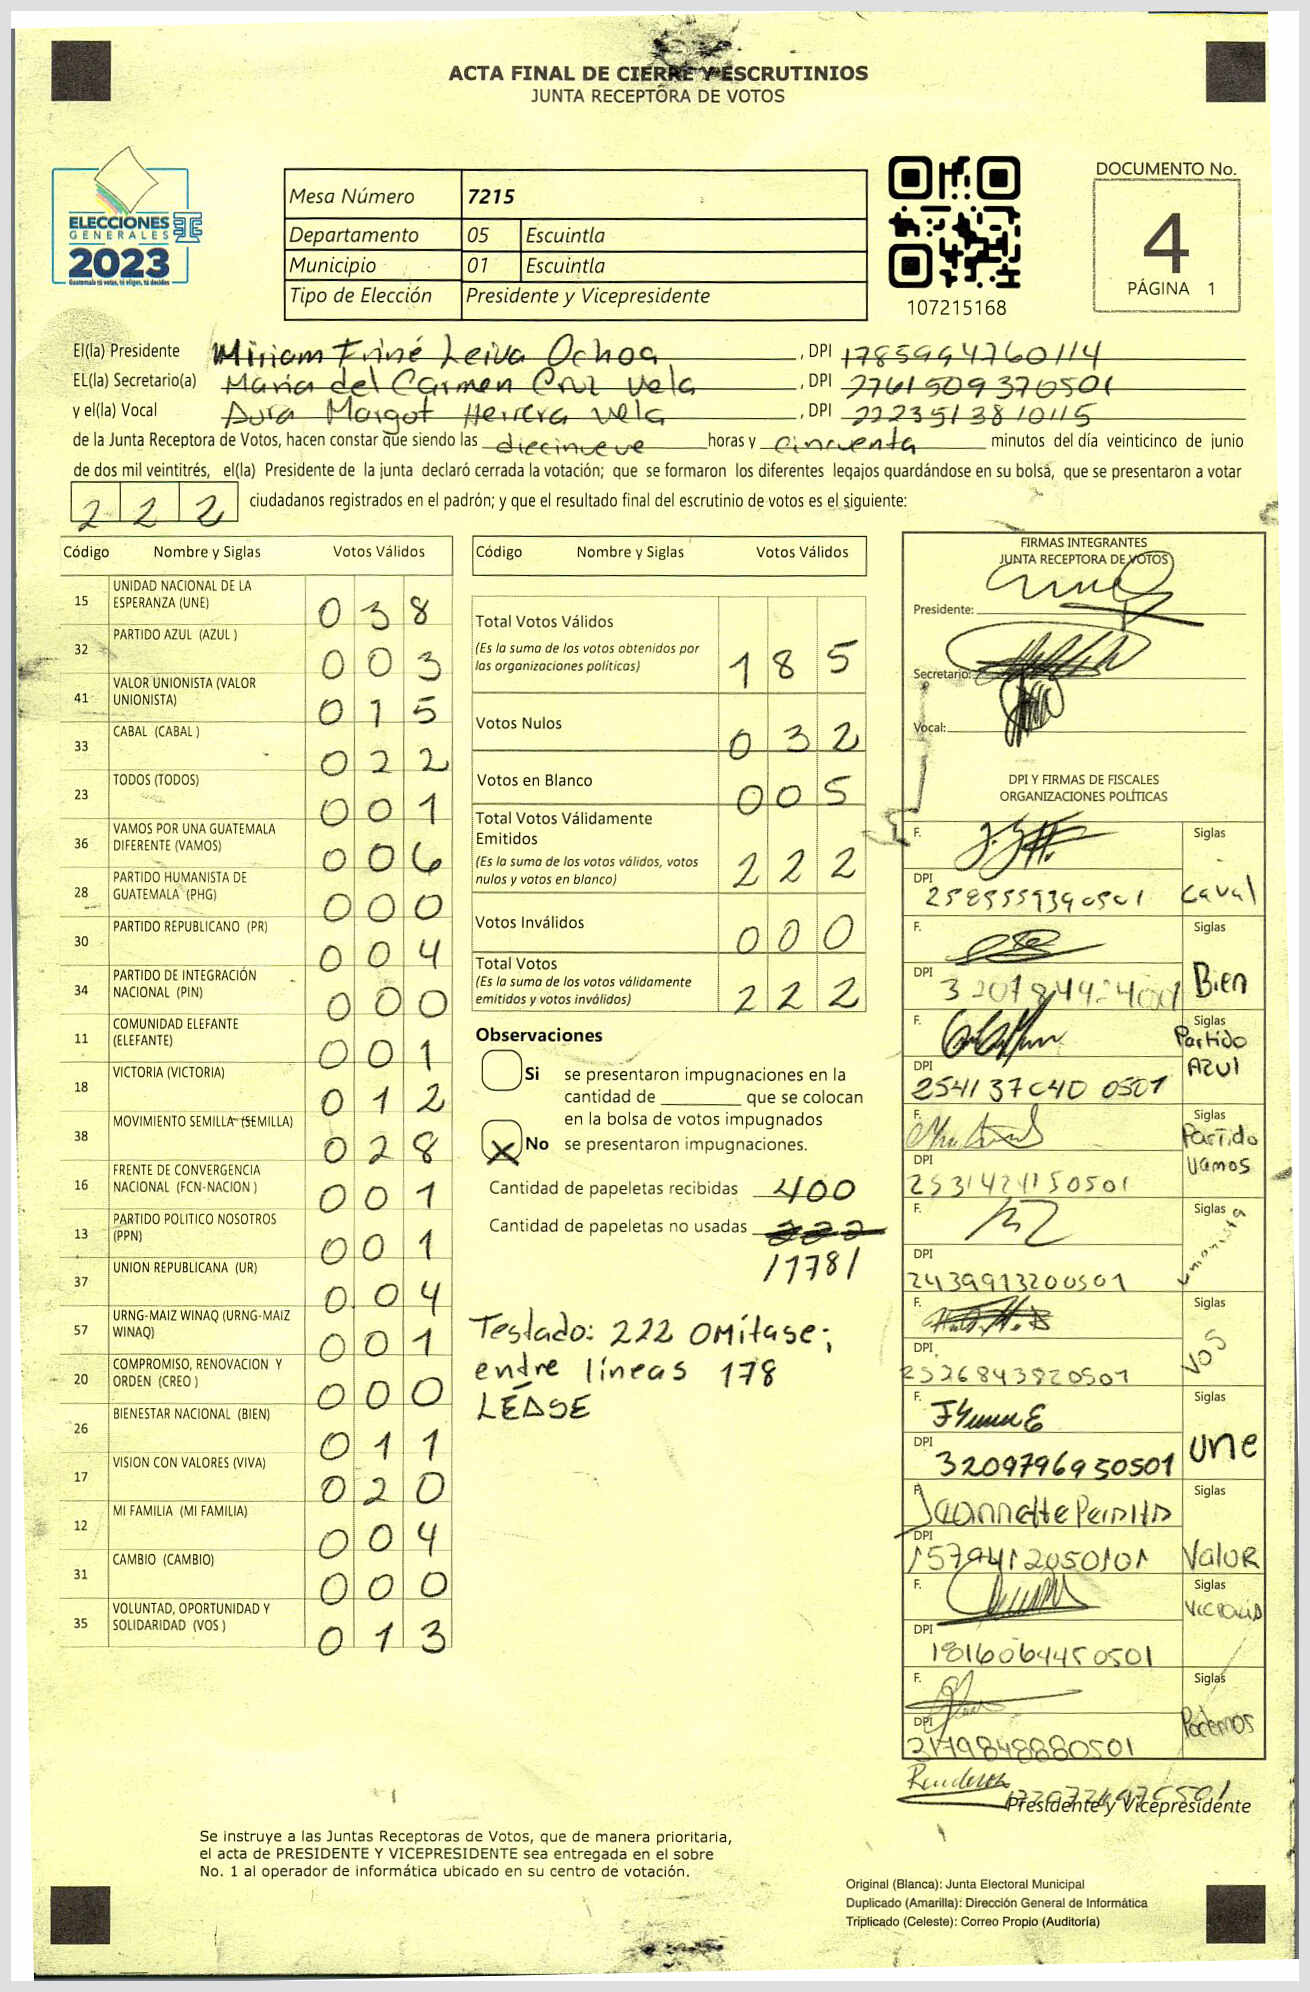 ACTA FINAL DE CIERRE Y ESCRUTINIOS
JUNTA RECEPTORA DE VOTOS
ELECCIONES
GENERALES
2023
Guatemala tú votas, tú eliges, tú decides
Mesa Número 7215
Departamento 05 Escuintla
Municipio 01 Escuintla
Tipo de Elección Presidente y Vicepresidente
107215168
DOCUMENTO No.
4
PÁGINA 1
El(la) Presidente Miriam Friné Leiva Ochoa, DPI 1785994760114
EL(la) Secretario(a) Maria del Carmen Cruz Vela, DPI 2761509370501
y el(la) Vocal Aura Margot Herrera Vela, DPI 2223513810115
de la Junta Receptora de Votos, hacen constar que siendo las diecinueve horas y cincuenta minutos del día veinticinco de junio
de dos mil veintitrés, el(la) Presidente de la junta declaró cerrada la votación; que se formaron los diferentes legajos guardándose en su bolsa, que se presentaron a votar
222 ciudadanos registrados en el padrón; y que el resultado final del escrutinio de votos es el siguiente:
Código Nombre y Siglas Votos Válidos
15 UNIDAD NACIONAL DE LA ESPERANZA (UNE) 038
32 PARTIDO AZUL (AZUL ) 003
41 VALOR UNIONISTA (VALOR UNIONISTA) 015
33 CABAL (CABAL ) 022
23 TODOS (TODOS) 001
36 VAMOS POR UNA GUATEMALA DIFERENTE (VAMOS) 006
28 PARTIDO HUMANISTA DE GUATEMALA (PHG) 000
30 PARTIDO REPUBLICANO (PR) 004
34 PARTIDO DE INTEGRACIÓN NACIONAL (PIN) 000
11 COMUNIDAD ELEFANTE (ELEFANTE) 001
18 VICTORIA (VICTORIA) 012
38 MOVIMIENTO SEMILLA (SEMILLA) 028
16 FRENTE DE CONVERGENCIA NACIONAL (FCN-NACION ) 001
13 PARTIDO POLITICO NOSOTROS (PPN) 001
37 UNION REPUBLICANA (UR) 004
57 URNG-MAIZ WINAQ (URNG-MAIZ WINAQ) 001
20 COMPROMISO, RENOVACION Y ORDEN (CREO ) 000
26 BIENESTAR NACIONAL (BIEN) 011
17 VISION CON VALORES (VIVA) 020
12 MI FAMILIA (MI FAMILIA) 004
31 CAMBIO (CAMBIO) 000
35 VOLUNTAD, OPORTUNIDAD Y SOLIDARIDAD (VOS ) 013
Código Nombre y Siglas Votos Válidos
Total Votos Válidos
(Es la suma de los votos obtenidos por
las organizaciones políticas) 185
Votos Nulos 032
Votos en Blanco 005
Total Votos Válidamente
Emitidos
(Es la suma de los votos válidos, votos
nulos y votos en blanco) 222
Votos Inválidos 000
Total Votos
(Es la suma de los votos válidamente
emitidos y votos inválidos) 222
Observaciones
Si se presentaron impugnaciones en la
cantidad de ________ que se colocan
en la bolsa de votos impugnados
X No se presentaron impugnaciones.
Cantidad de papeletas recibidas 400
Cantidad de papeletas no usadas 222
/178/
Testado: 222 OMítase;
entre líneas 178
LÉASE
FIRMAS INTEGRANTES
JUNTA RECEPTORA DE VOTOS
Presidente:
Secretario:
Vocal:
DPI Y FIRMAS DE FISCALES
ORGANIZACIONES POLÍTICAS
F. Siglas
DPI 2585559390501 Caval
F. Siglas
DPI Bien
F. Siglas
Partido
AZUl
DPI 254137040 0501
F. Siglas
Partido
Vamos
DPI 2531424150501
F. Siglas
Unionista
DPI 2439913200501
F. Siglas
VOS
DPI 2526843820501
F. Siglas
DPI 3209796950501 une
F. Jeannette Siglas
DPI 1579412050101 Valor
F. Siglas
VICTORIA
DPI 1816064450501
F. Siglas
Podemos
DPI 3179848880501
Presidente y Vicepresidente
Se instruye a las Juntas Receptoras de Votos, que de manera prioritaria,
el acta de PRESIDENTE Y VICEPRESIDENTE sea entregada en el sobre
No. 1 al operador de informática ubicado en su centro de votación.
Original (Blanca): Junta Electoral Municipal
Duplicado (Amarilla): Dirección General de Informática
Triplicado (Celeste): Correo Propio (Auditoría)